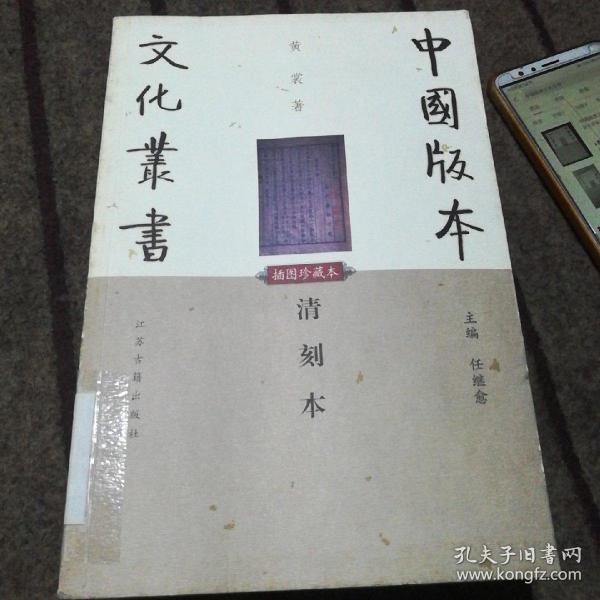 中國版本
文化叢書
黄裳著
插图珍藏本
清刻本
主编 任继愈
江苏古籍出版社
孔夫子旧書网
www.kongfz.com